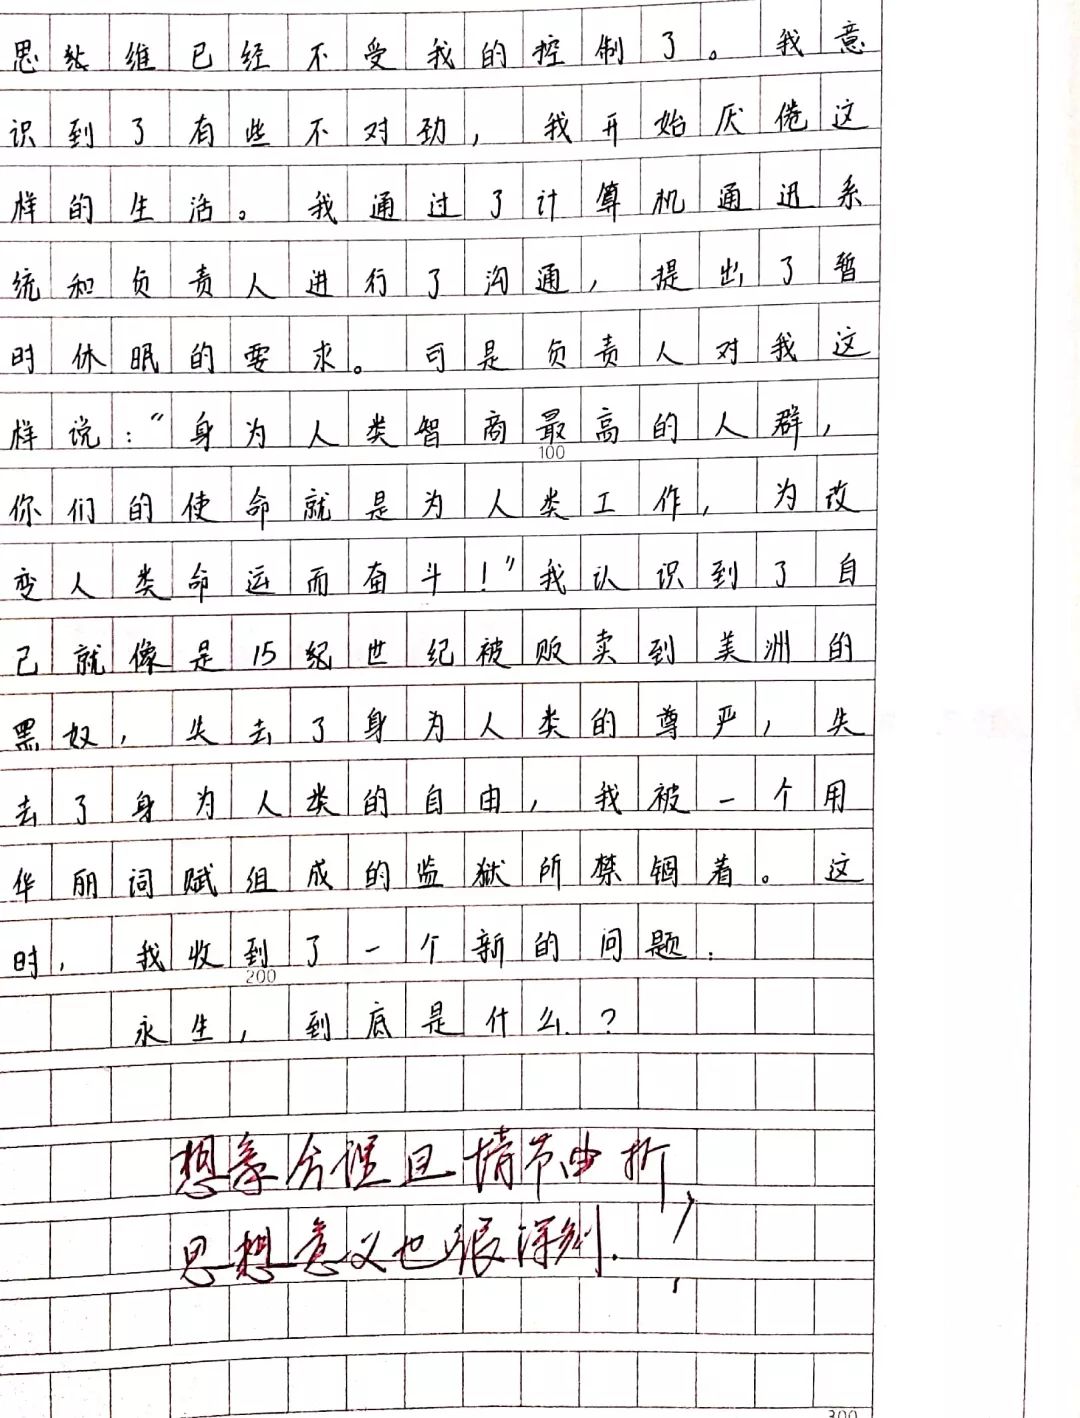 思维已经不受我的控制了。我意
识到了有些不对劲，我开始厌倦这
样的生活。我通过了计算机通迅系
统和负责人进行了沟通，提出了暂
时休眠的要求。可是负责人对我这
样说：“身为人类智商最高的人群，
100
你们的使命就是为人类工作，为改
变人类命运而奋斗！”我认识到了自
己就像是15纪世纪被贩卖到美洲的
黑奴，失去了身为人类的尊严，失
去了身为人类的自由，我被一个用
华丽词赋组成的监狱所禁锢着。这
时，我收到了一个新的问题：
200
永生，到底是什么？
想象合理且情节曲折，
思想意义也很深刻.
300